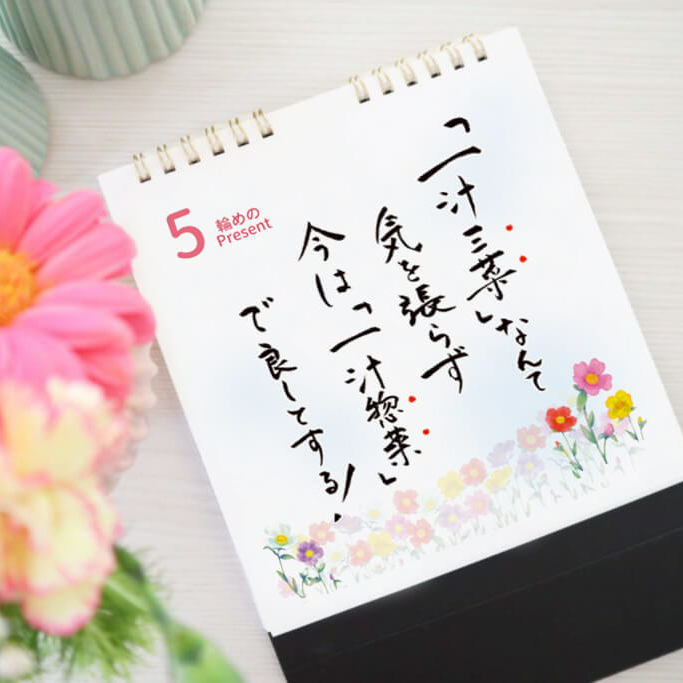 5
輪めの
Present
「一汁三菜」なんて
気を張らず
今は「一汁惣菜」
で良しとする!